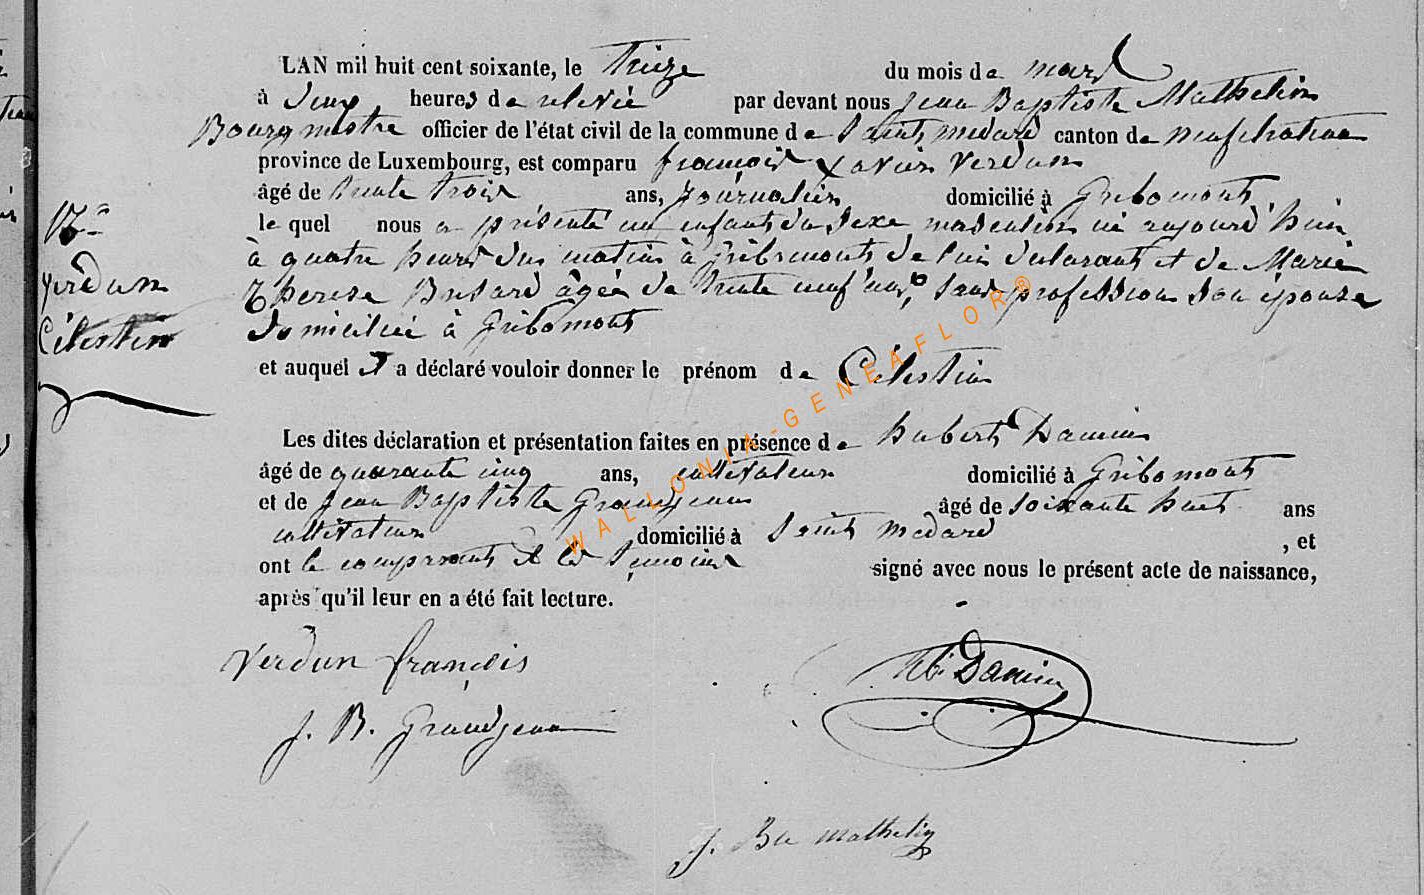 LAN mil huit cent soixante, le treize du mois de mars
à deux heures de relevée par devant nous Jean Baptiste Mathelin
Bourgmestre officier de l'état civil de la commune de Saint medard canton de neufchateau
province de Luxembourg, est comparu françois Xavier Verdun
âgé de trente trois ans, Journalier domicilié à Gribomont
le quel nous a présenté un enfant du sexe masculin né aujourd'hui
à quatre heures du matin à Gribomont de lui déclarant et de Marie
Therese Brisard âgée de trente neuf ans, sans profession son épouse
domiciliée à Gribomont
et auquel il a déclaré vouloir donner le prénom de Célestin
Les dites déclaration et présentation faites en présence de hubert Damien
âgé de quarante cinq ans, cultivateur domicilié à Gribomont
et de Jean Baptiste Grandjean âgé de soixante huit ans
cultivateur domicilié à Saint medard , et
ont le comparant et les témoins signé avec nous le présent acte de naissance,
après qu'il leur en a été fait lecture.
Verdun
Célestin
Verdun françois
hb Damien
J. B. Grandjean
J. Bte Mathelin
WALLONIA-GENEAFLOR®